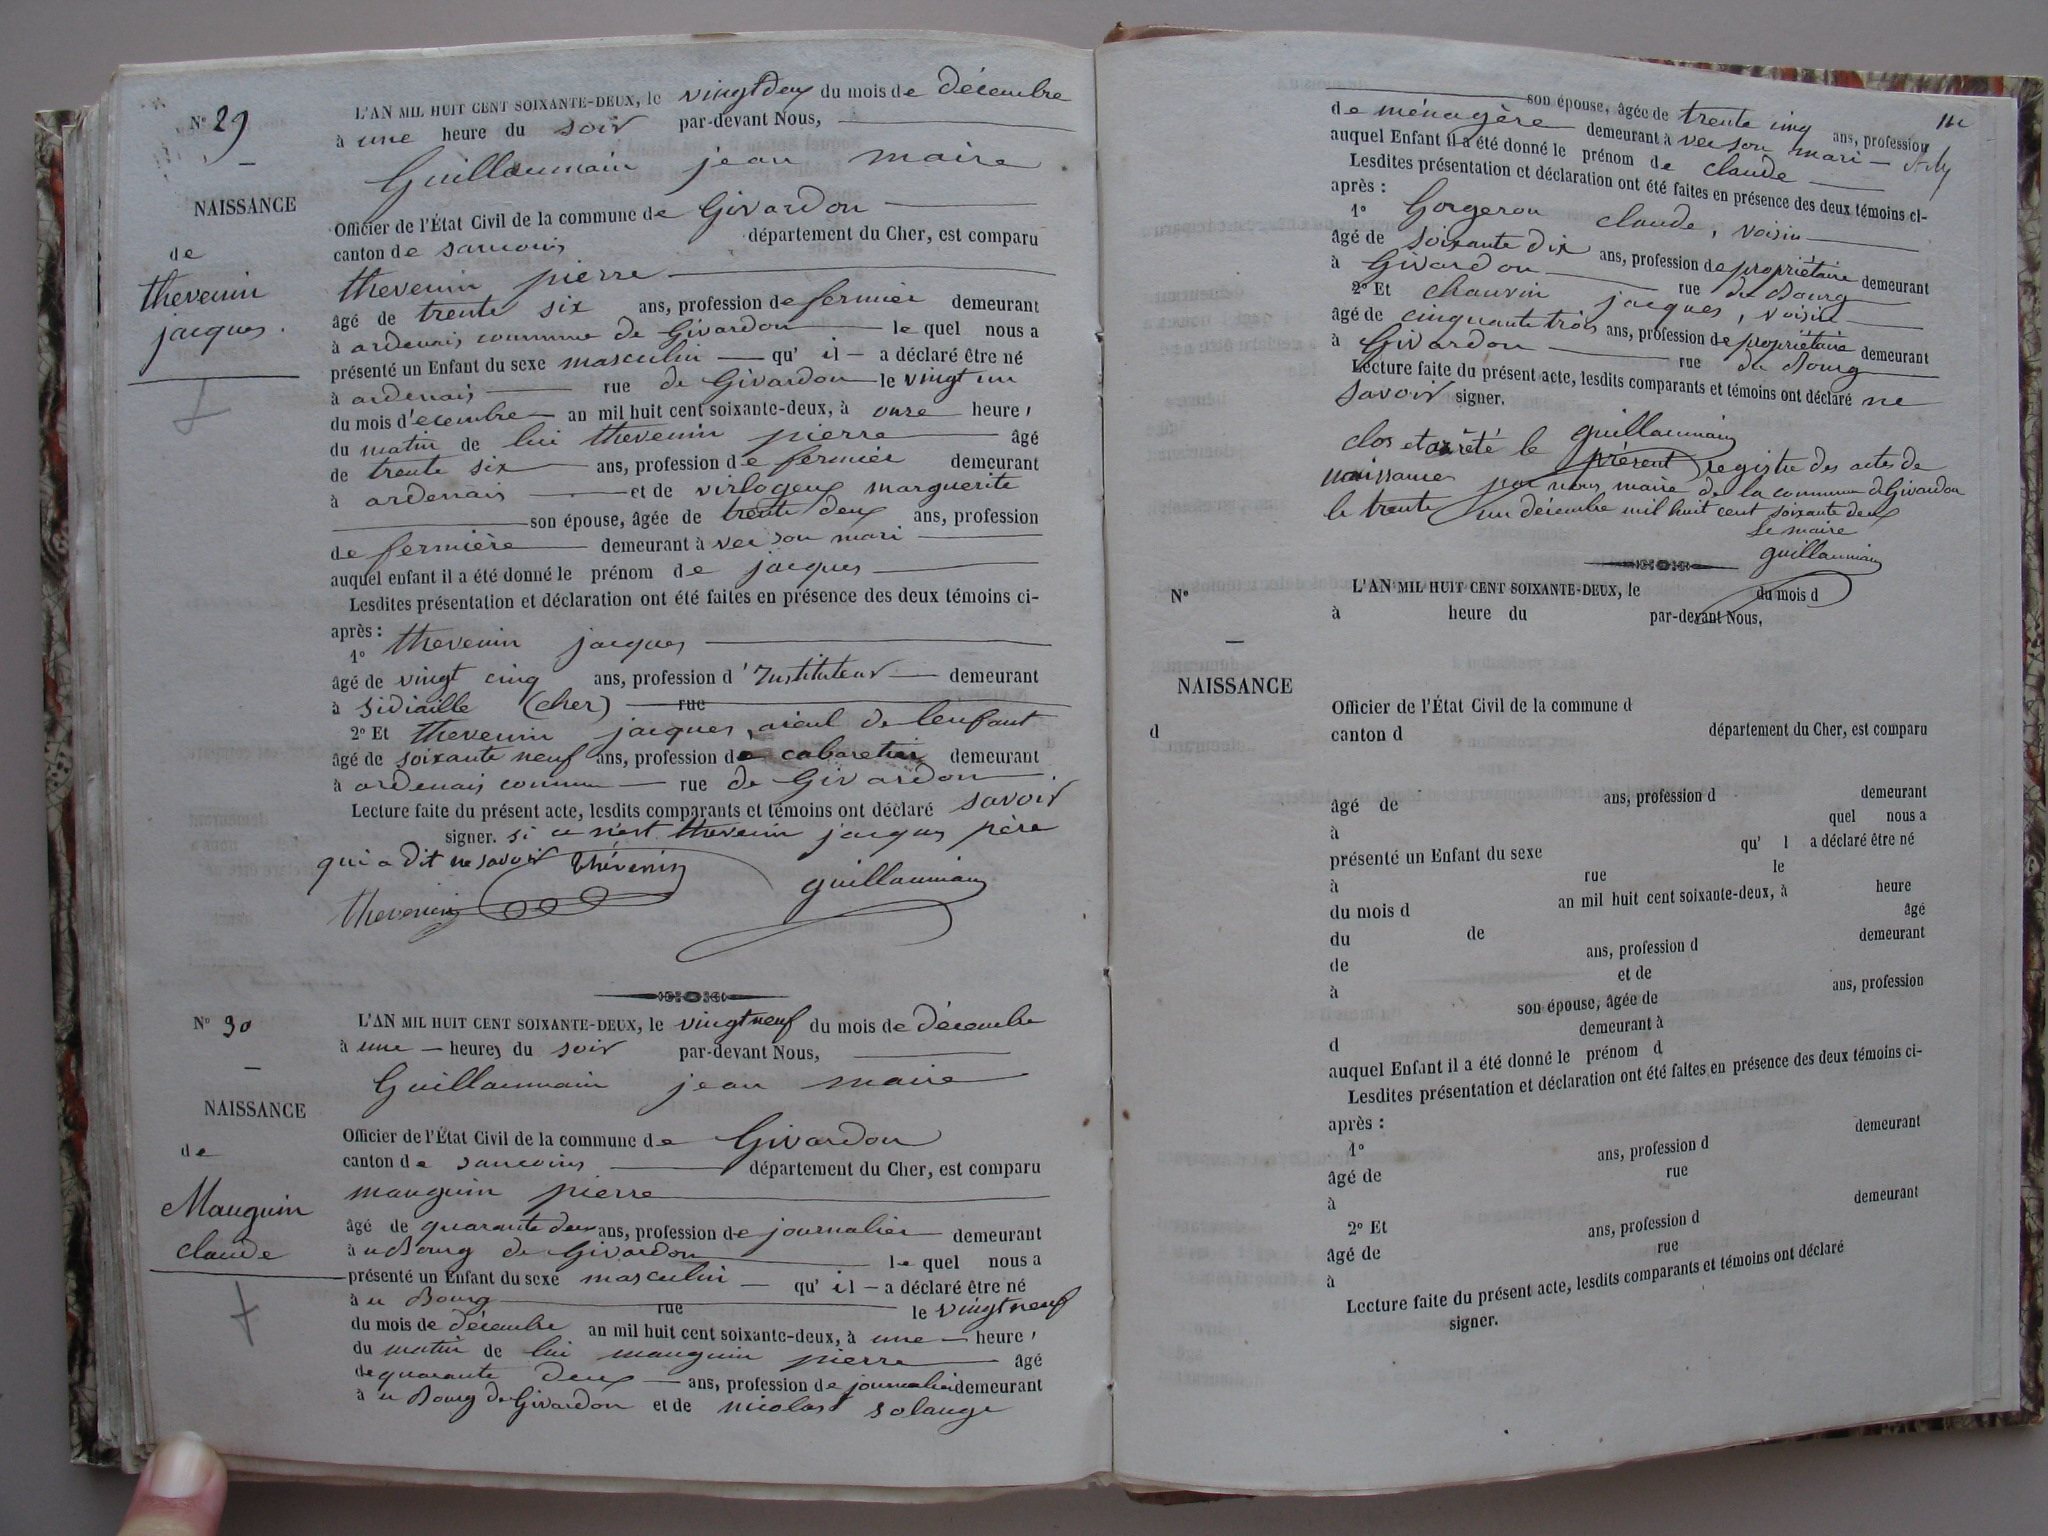 N° 29
NAISSANCE
de
thevenin
jacques.
L'AN MIL HUIT CENT SOIXANTE-DEUX, le vingt deux du mois de décembre
à une heure du soir par-devant Nous,
Guillaumain jean maire
Officier de l'État Civil de la commune de Givardon
canton de sancoins département du Cher, est comparu
thevenin pierre
âgé de trente six ans, profession de fermier demeurant
à ardenais commune de Givardon le quel nous a
présenté un Enfant du sexe masculin qu' il a déclaré être né
à ardenais rue de Givardon le vingt un
du mois d'ecembre an mil huit cent soixante-deux, à onze heure,
du matin de lui thevenin pierre âgé
de trente six ans, profession de fermier demeurant
à ardenais et de virlogeux marguerite
son épouse, âgée de trente deux ans, profession
de fermière demeurant à vec son mari
auquel enfant il a été donné le prénom de jacques
Lesdites présentation et déclaration ont été faites en présence des deux témoins ci-
après :
1° thevenin jacques
âgé de vingt cinq ans, profession d'Instituteur demeurant
à sidiaille (cher) rue
2° Et thevenin jacques, aieul de lenfant
âgé de soixante neuf ans, profession de cabaretier demeurant
à ardenais commune rue de Givardon
Lecture faite du présent acte, lesdits comparants et témoins ont déclaré savoir
signer. si ce n'est thevenin jacques père
qui a dit ne savoir Thévenin
thevenin guillaumain
N° 30
NAISSANCE
de
Mauguin
claude
L'AN MIL HUIT CENT SOIXANTE-DEUX, le vingt neuf du mois de décembre
à une heures du soir par-devant Nous,
Guillaumain jean maire
Officier de l'État Civil de la commune de Givardon
canton de sancoins département du Cher, est comparu
mauguin pierre
âgé de quarante deux ans, profession de journalier demeurant
à u Bourg de Givardon le quel nous a
présenté un Enfant du sexe masculin qu' il a déclaré être né
à u Bourg rue le vingt neuf
du mois de décembre an mil huit cent soixante-deux, à une heure,
du matin de lui mauguin pierre âgé
de quarante deux ans, profession de journalier demeurant
à u Bourg de Givardon et de nicolas solange
son épouse, âgée de trente cinq ans, profession
de ménagère demeurant à vec son mari
auquel Enfant il a été donné le prénom de claude
Lesdites présentation et déclaration ont été faites en présence des deux témoins ci-
après :
1° Gorgeron claude, voisin
âgé de soixante dix ans, profession de propriétaire demeurant
à Givardon rue du Bourg
2° Et chauvin jacques, voisin
âgé de cinquante trois ans, profession de propriétaire demeurant
à Givardon rue du Bourg
Lecture faite du présent acte, lesdits comparants et témoins ont déclaré ne
savoir signer.
guillaumain
clos et arrêté le présent registre des actes de
naissances par nous maire de la commune de Givardon
le trente un décembre mil huit cent soixante deux
Le maire
guillaumain
N°
NAISSANCE
d
L'AN MIL HUIT CENT SOIXANTE-DEUX, le du mois d
à heure du par-devant Nous,
Officier de l'État Civil de la commune d
canton d département du Cher, est comparu
âgé de ans, profession d demeurant
à quel nous a
présenté un Enfant du sexe qu' l a déclaré être né
à rue le
du mois d an mil huit cent soixante-deux, à heure
du de âgé
de ans, profession d demeurant
à et de
son épouse, âgée de ans, profession
d demeurant à
auquel Enfant il a été donné le prénom d
Lesdites présentation et déclaration ont été faites en présence des deux témoins ci-
après :
1°
âgé de ans, profession d demeurant
à rue
2° Et
âgé de ans, profession d demeurant
à rue
Lecture faite du présent acte, lesdits comparants et témoins ont déclaré
signer.